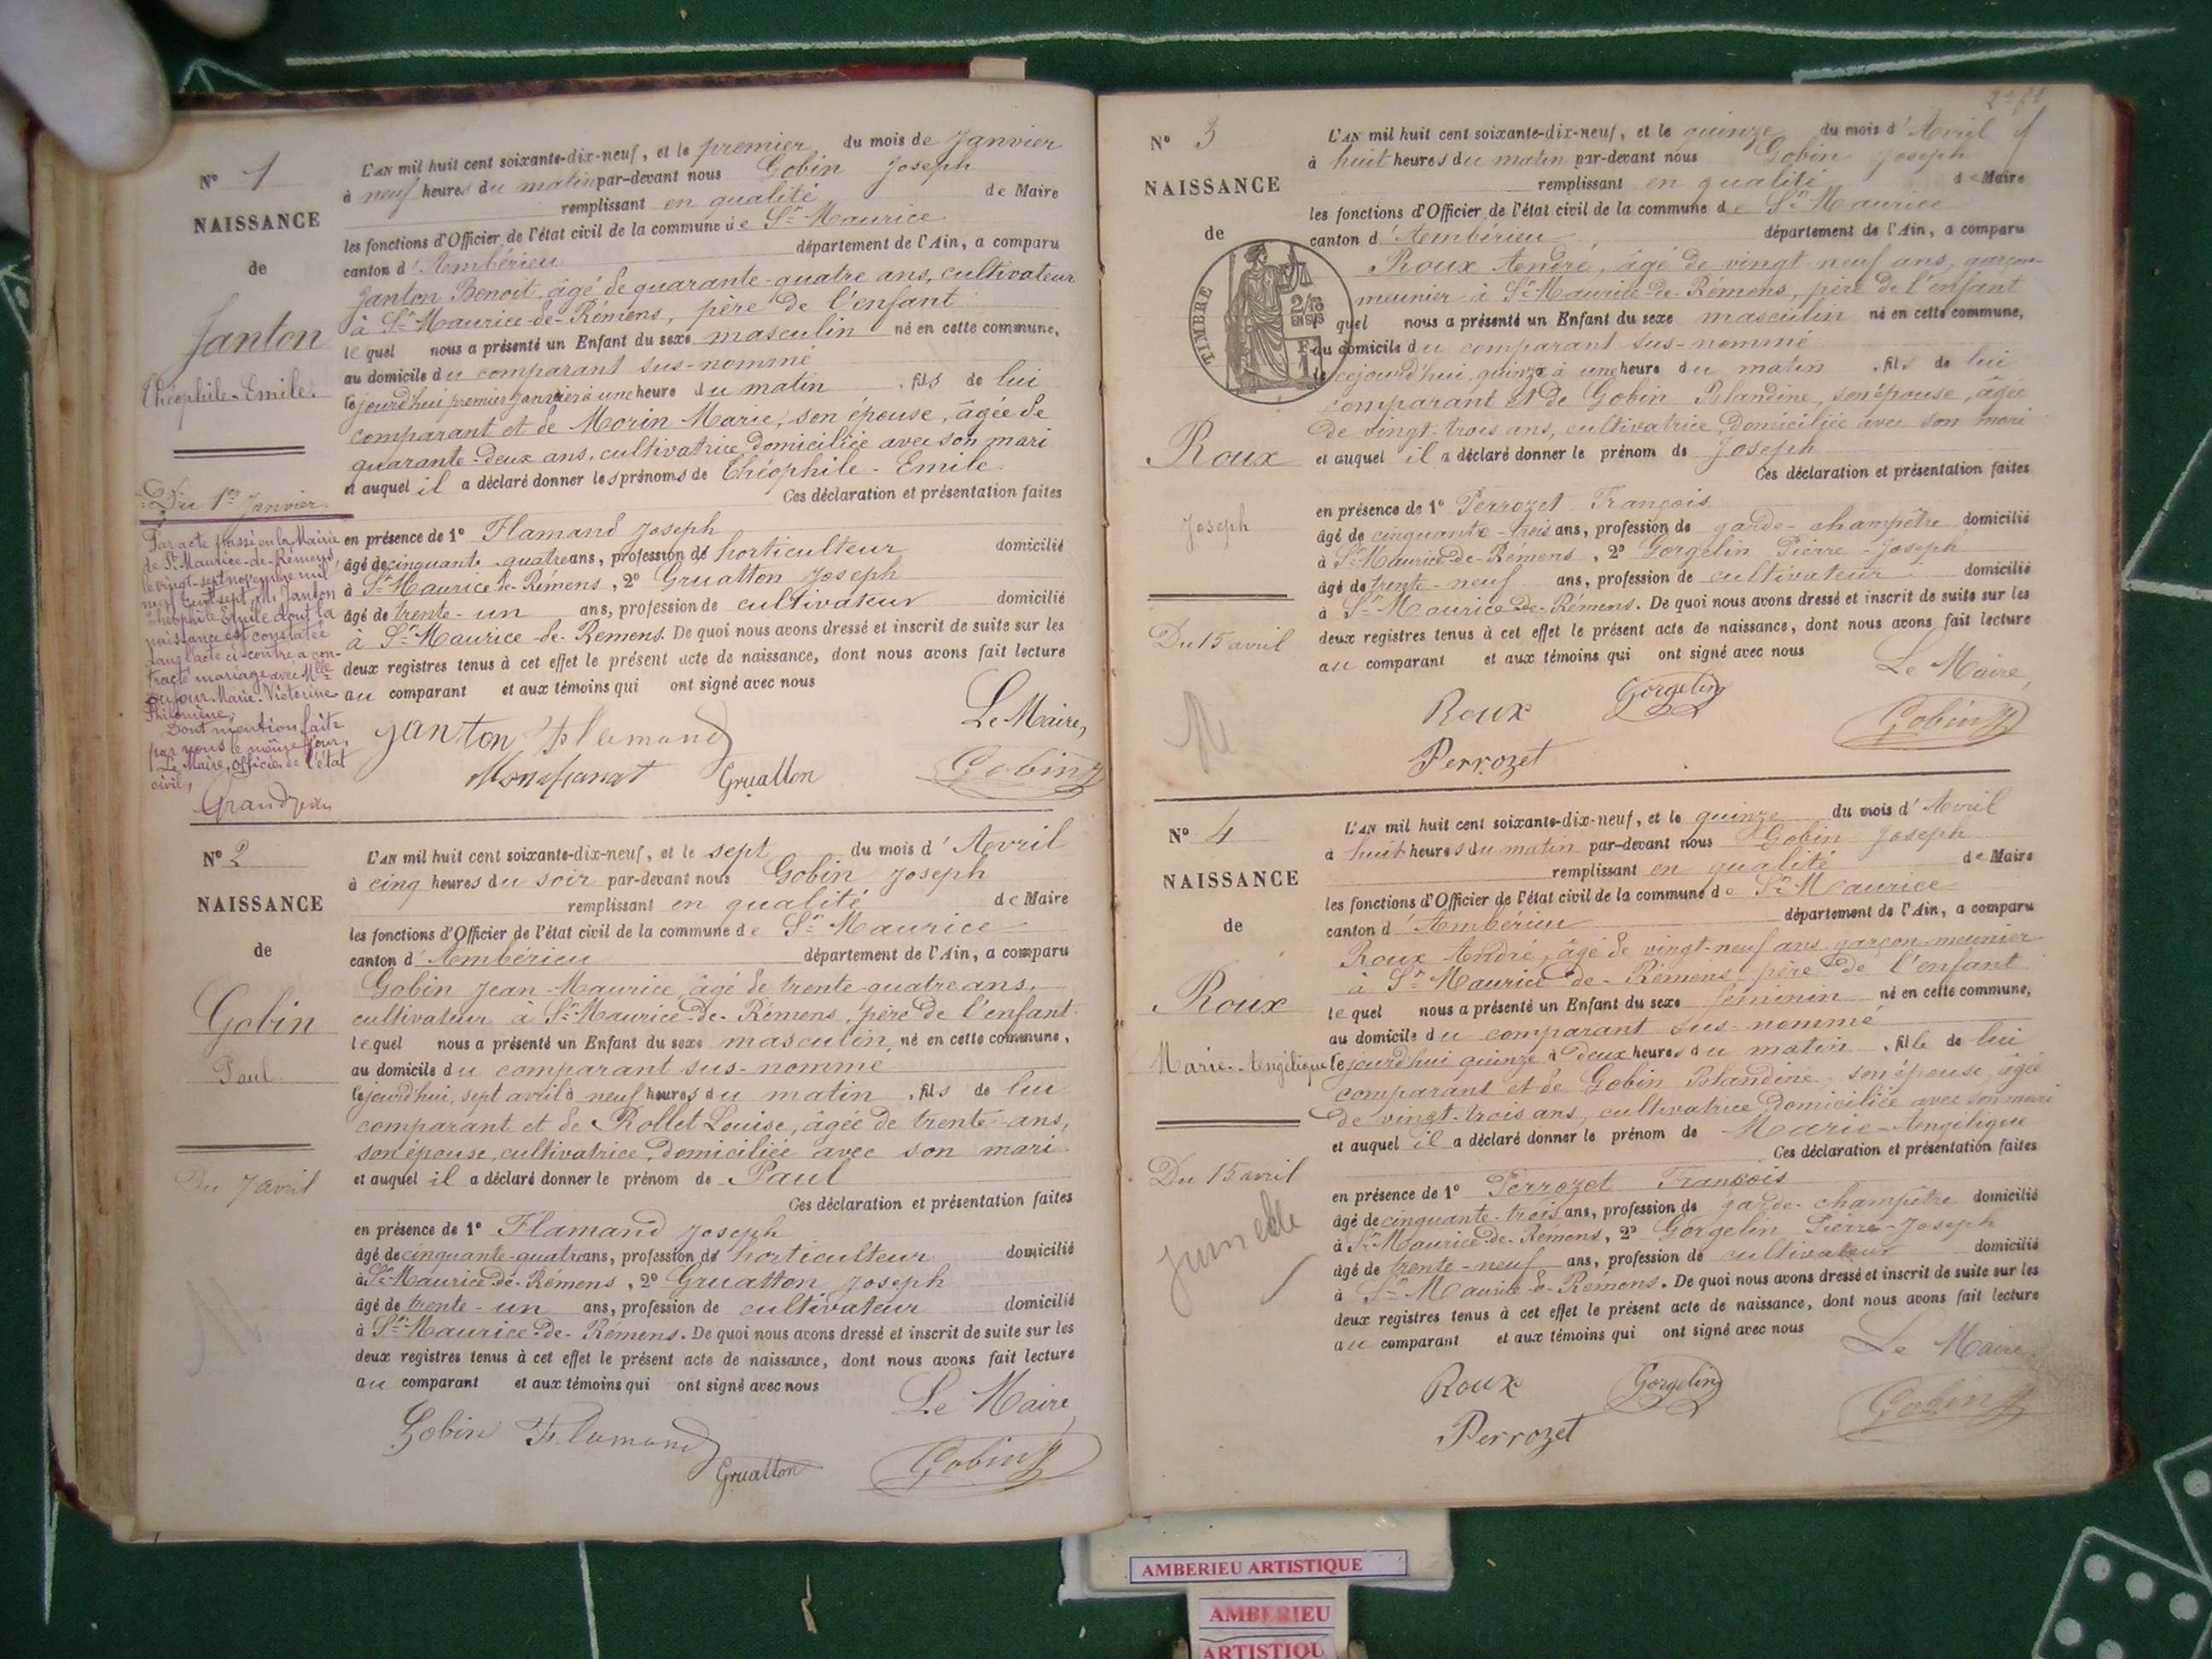 N° 1
NAISSANCE
de
Janton
Théophile-Emile.
Du 1er Janvier.
Par acte passé en la Mairie
de St Maurice-de-Rémens,
le vingt-sept novembre mil
neuf cent sept, M. Janton
Théophile Emile dont la
naissance est constatée
dans l'acte ci-contre a con-
tracté mariage avec Mlle
Dufour Marie-Victorine
Philomène.
Dont mention faite
par nous le même jour,
Le Maire, officier de l'état
civil,
Grandjean
L'AN mil huit cent soixante-dix-neuf, et le premier du mois de Janvier
à neuf heures du matin par-devant nous Gobin Joseph
remplissant en qualité de Maire
les fonctions d'Officier de l'état civil de la commune de St Maurice
canton d'Ambérieu département de l'Ain, a comparu
Janton Benoit, âgé de quarante-quatre ans, cultivateur
à St Maurice-de-Rémens, père de l'enfant
lequel nous a présenté un Enfant du sexe masculin né en cette commune,
au domicile du comparant sus-nommé
lejourd'hui premier janvier à une heure du matin, fils de lui
comparant et de Morin Marie, son épouse, âgée de
quarante-deux ans, cultivatrice, domiciliée avec son mari
et auquel il a déclaré donner les prénoms de Théophile-Emile.
Ces déclaration et présentation faites
en présence de 1° Flamand Joseph
âgé de cinquante-quatre ans, profession de horticulteur domicilié
à St Maurice-de-Rémens, 2° Gruatton Joseph
âgé de trente-un ans, profession de cultivateur domicilié
à St Maurice-de-Remens. De quoi nous avons dressé et inscrit de suite sur les
deux registres tenus à cet effet le présent acte de naissance, dont nous avons fait lecture
au comparant et aux témoins qui ont signé avec nous
Le Maire,
Janton Flamand
Gruatton Gobin
N° 2
NAISSANCE
de
Gobin
Paul.
Du 7 avril
L'AN mil huit cent soixante-dix-neuf, et le sept du mois d'Avril
à cinq heures du soir par-devant nous Gobin Joseph
remplissant en qualité de Maire
les fonctions d'Officier de l'état civil de la commune de St Maurice
canton d'Ambérieu département de l'Ain, a comparu
Gobin Jean-Maurice, âgé de trente-quatre ans,
cultivateur à St Maurice-de-Rémens, père de l'enfant
lequel nous a présenté un Enfant du sexe masculin, né en cette commune,
au domicile du comparant sus-nommé
lejourd'hui, sept avril à neuf heures du matin, fils de lui
comparant et de Rollet Louise, âgée de trente-ans,
son épouse, cultivatrice, domiciliée avec son mari
et auquel il a déclaré donner le prénom de Paul
Ces déclaration et présentation faites
en présence de 1° Flamand Joseph
âgé de cinquante-quatre ans, profession de horticulteur domicilié
à St Maurice-de-Rémens, 2° Gruatton Joseph
âgé de trente-un ans, profession de cultivateur domicilié
à St Maurice-de-Rémens. De quoi nous avons dressé et inscrit de suite sur les
deux registres tenus à cet effet le présent acte de naissance, dont nous avons fait lecture
au comparant et aux témoins qui ont signé avec nous
Le Maire
Gobin Flamand
Gruatton Gobin
N° 3
NAISSANCE
de
TIMBRE
Roux
Joseph
Du 15 avril
L'AN mil huit cent soixante-dix-neuf, et le quinze du mois d'Avril
à huit heures du matin par-devant nous Gobin Joseph
remplissant en qualité de Maire
les fonctions d'Officier de l'état civil de la commune de St Maurice
canton d'Ambérieu département de l'Ain, a comparu
Roux André, âgé de vingt-neuf ans, garçon-
meunier à St Maurice-de-Rémens, père de l'enfant
quel nous a présenté un Enfant du sexe masculin né en cette commune,
au domicile du comparant sus-nommé
le cejourd'hui, quinze à une heure du matin, fils de lui
comparant et de Gobin Blandine, son épouse, âgée
de vingt-trois ans, cultivatrice, domiciliée avec son mari
et auquel il a déclaré donner le prénom de Joseph
Ces déclaration et présentation faites
en présence de 1° Perrozet François
âgé de cinquante-trois ans, profession de garde-champêtre domicilié
à St Maurice-de-Rémens, 2° Gorgelin Pierre-Joseph
âgé de trente-neuf ans, profession de cultivateur domicilié
à St Maurice-de-Rémens. De quoi nous avons dressé et inscrit de suite sur les
deux registres tenus à cet effet le présent acte de naissance, dont nous avons fait lecture
au comparant et aux témoins qui ont signé avec nous
Le Maire,
Roux Gorgelin Gobin
Perrozet
N° 4
NAISSANCE
de
Roux
Marie-Angélique
Du 15 avril
Jumelle
L'AN mil huit cent soixante-dix-neuf, et le quinze du mois d'Avril
à huit heures du matin par-devant nous Gobin Joseph
remplissant en qualité de Maire
les fonctions d'Officier de l'état civil de la commune de St Maurice
canton d'Ambérieu département de l'Ain, a comparu
Roux André, âgé de vingt-neuf ans garçon-meunier
à St Maurice-de-Rémens père de l'enfant
lequel nous a présenté un Enfant du sexe féminin né en cette commune,
au domicile du comparant sus-nommé
lejourd'hui quinze à deux heures du matin, fille de lui
comparant et de Gobin Blandine, son épouse, âgée
de vingt-trois ans, cultivatrice, domiciliée avec son mari
et auquel il a déclaré donner le prénom de Marie-Angélique
Ces déclaration et présentation faites
en présence de 1° Perrozet François
âgé de cinquante-trois ans, profession de garde-champêtre domicilié
à St Maurice-de-Rémens, 2° Gorgelin Pierre-Joseph
âgé de trente-neuf ans, profession de cultivateur domicilié
à St Maurice-de-Rémens. De quoi nous avons dressé et inscrit de suite sur les
deux registres tenus à cet effet le présent acte de naissance, dont nous avons fait lecture
au comparant et aux témoins qui ont signé avec nous
Le Maire
Roux Gorgelin Gobin
Perrozet
AMBERIEU ARTISTIQUE
AMBERIEU
ARTISTIQU